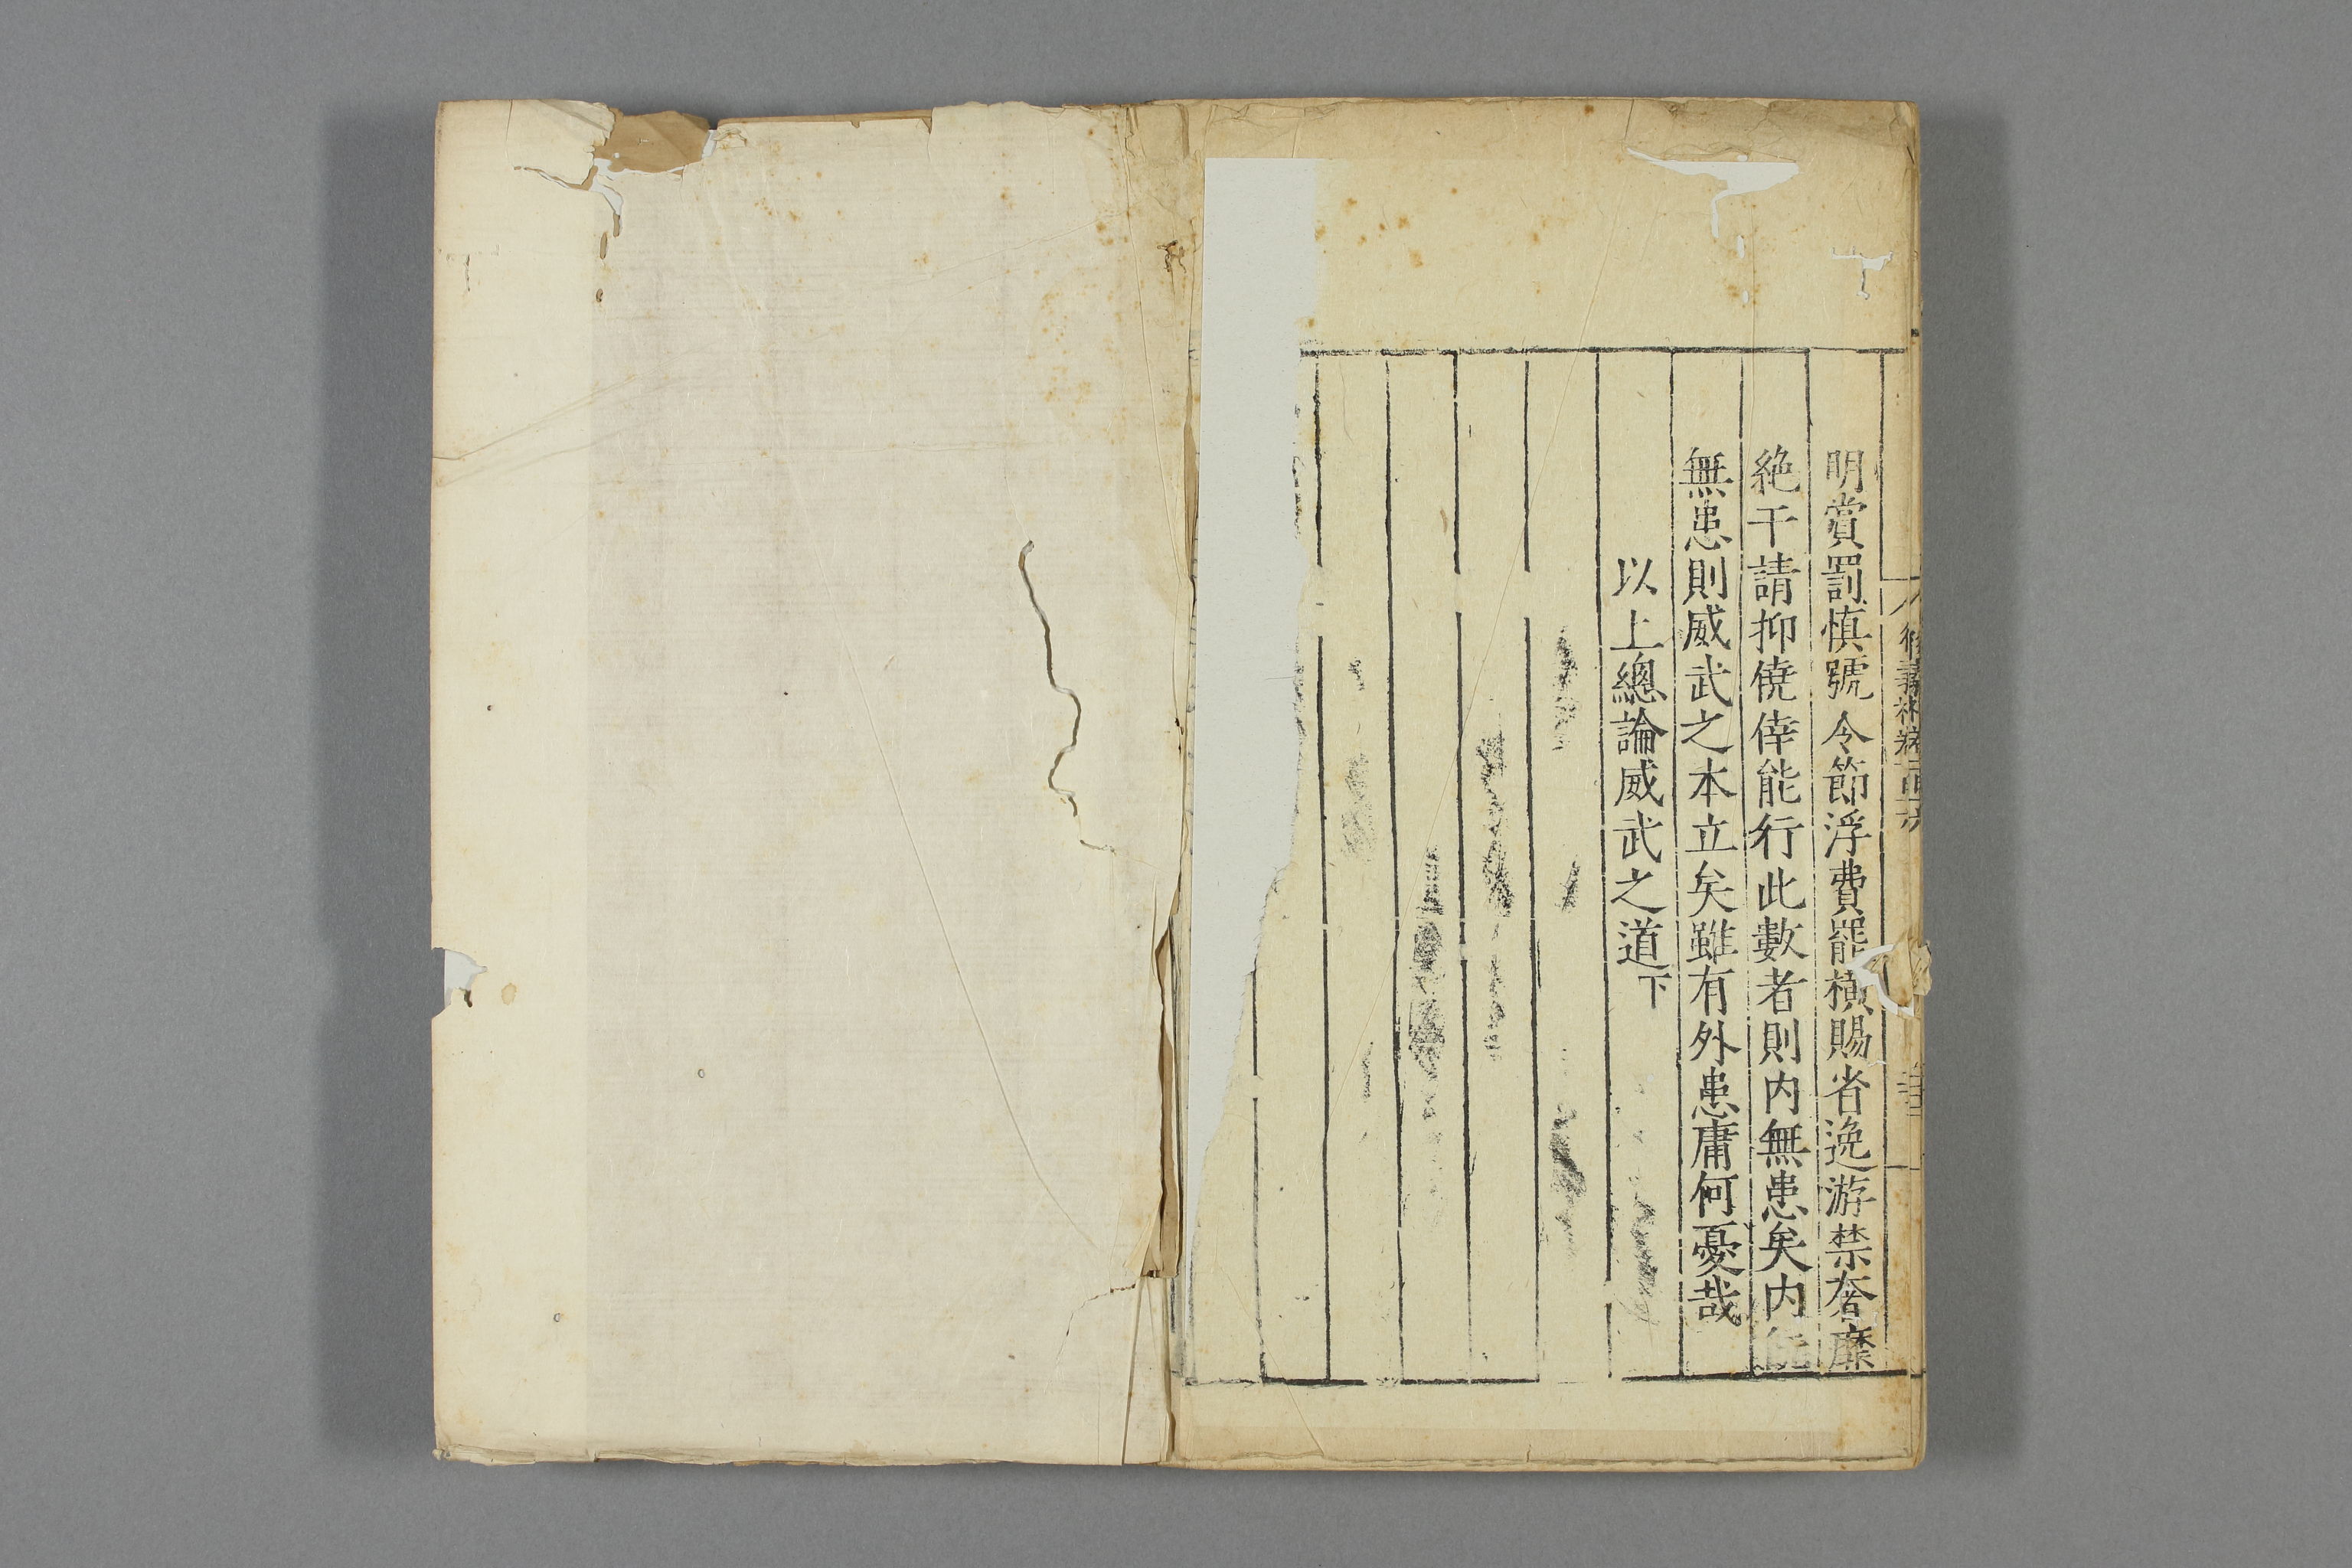 明賞罰慎號令節浮費罷橫賜省逸游禁奢靡
絶干請抑僥倖能行此數者則内無患矣内
無患則威武之本立矣雖有外患庸何憂哉
以上總論威武之道下